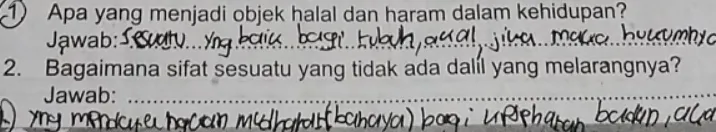 1 Apa yang menjadi objek halal dan haram dalam kehidupan?
Jawab: Sesuatu yng baik bagi tubuh, akal, jiwa maka hukumnya
2. Bagaimana sifat sesuatu yang tidak ada dalil yang melarangnya?
Jawab:
yng mudharat (bahaya) bagi badan,